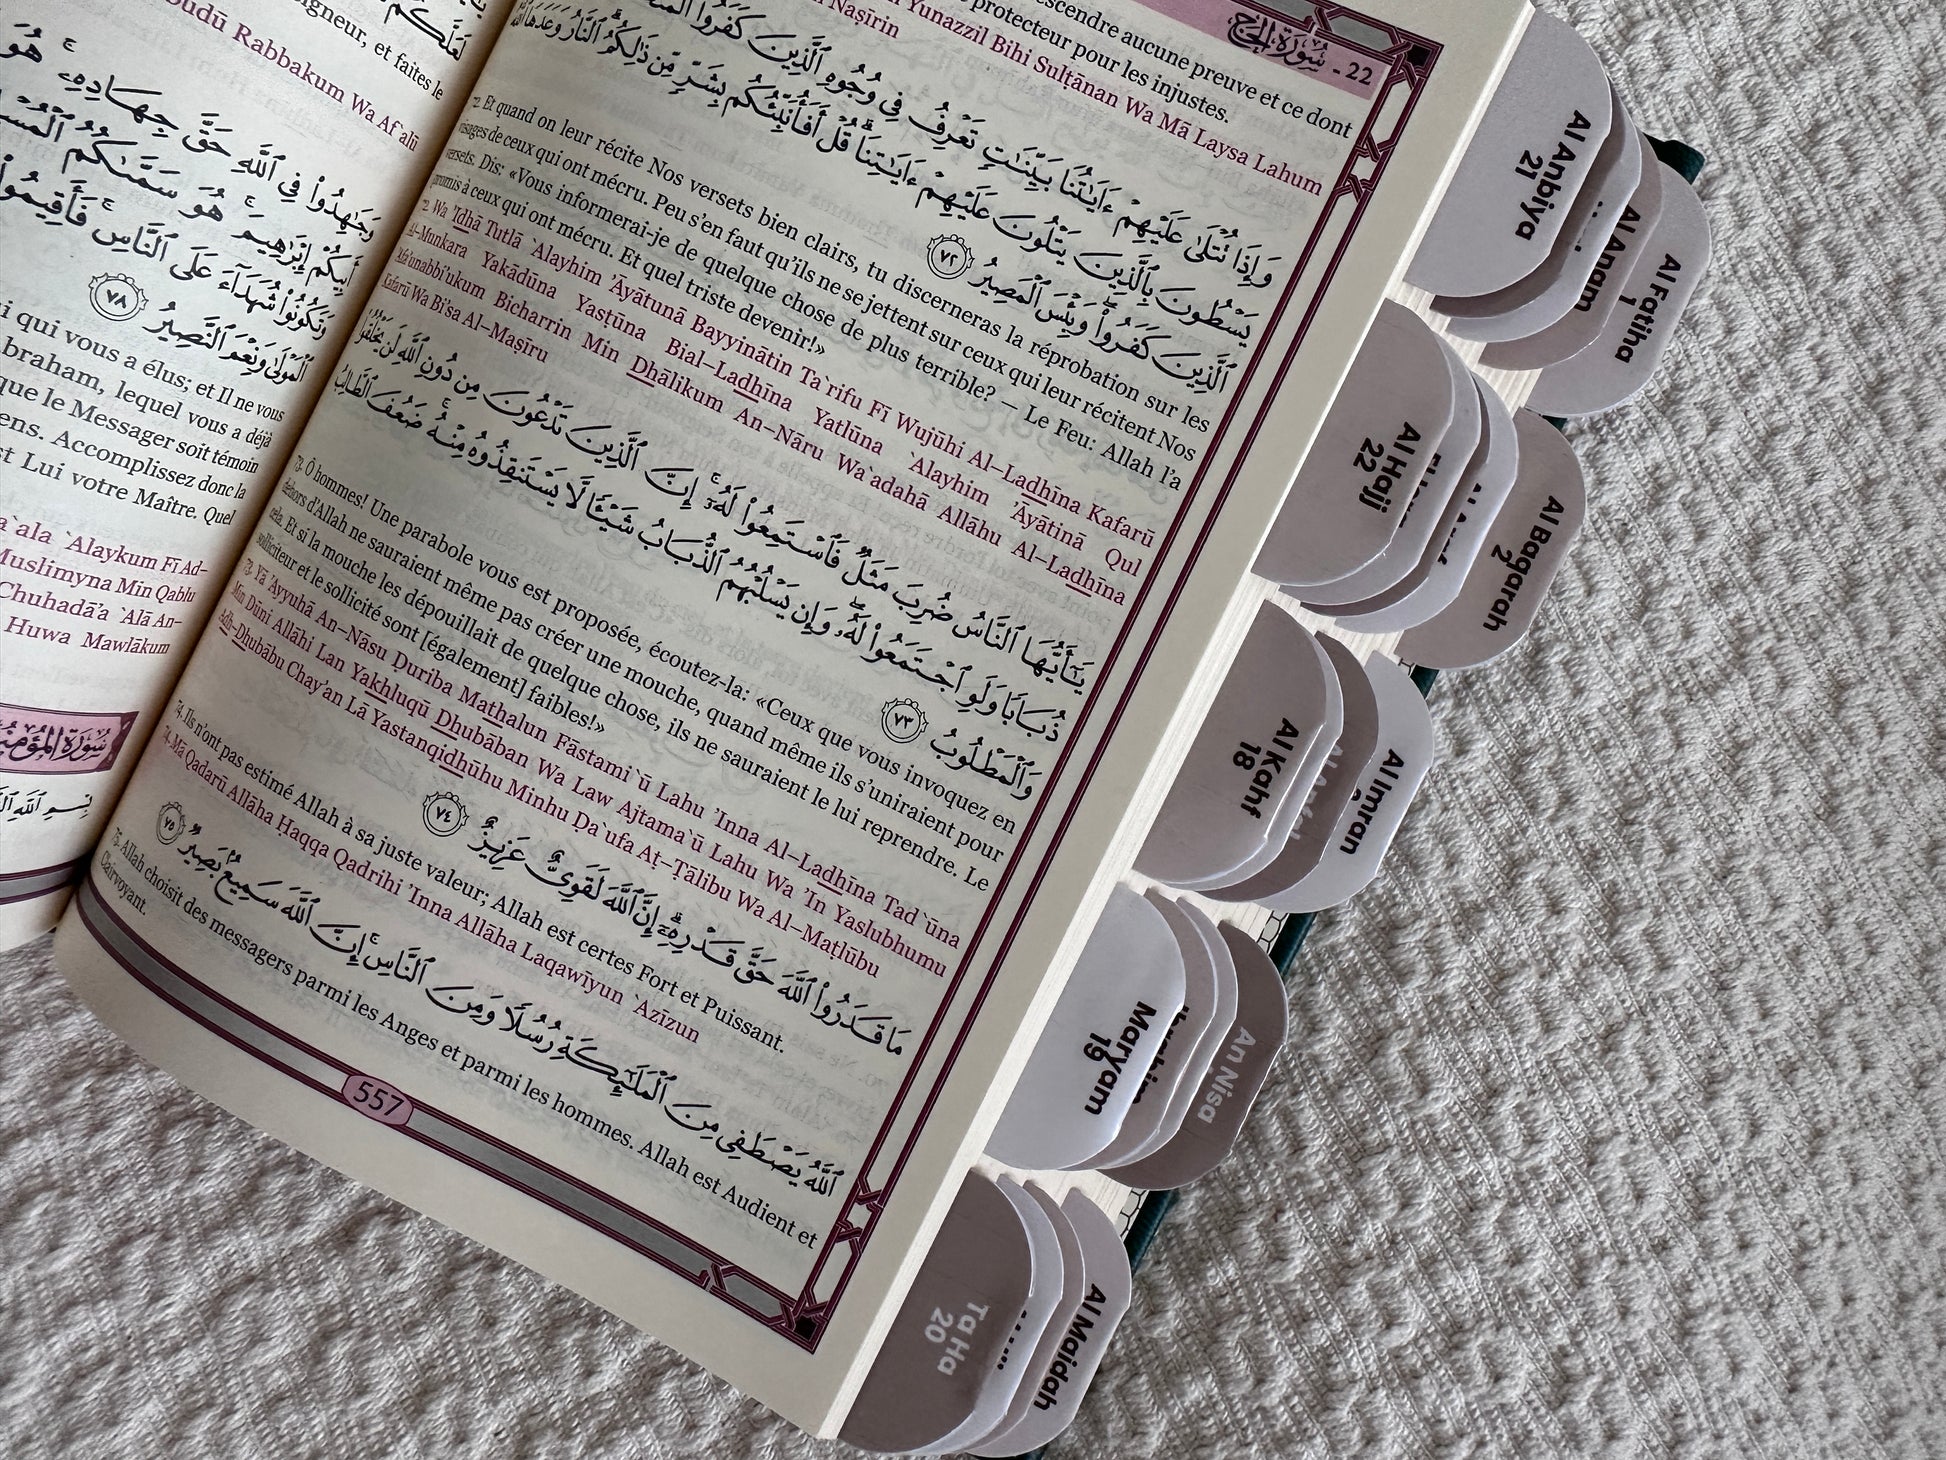 22 - سُورَةُ الحَجّ
escendre aucune preuve et ce dont
protecteur pour les injustes.
Yunazzil Bihi Sulṭānan Wa Mā Laysa Lahum
Naṣīrin
وَإِذَا تُتْلَىٰ عَلَيْهِمْ ءَايَٰتُنَا بَيِّنَٰتٍ تَعْرِفُ فِى وُجُوهِ ٱلَّذِينَ كَفَرُوا۟
يَسْطُونَ بِٱلَّذِينَ يَتْلُونَ عَلَيْهِمْ ءَايَٰتِنَا ۗ قُلْ أَفَأُنَبِّئُكُم بِشَرٍّ مِّن ذَٰلِكُمُ ۗ ٱلنَّارُ وَعَدَهَا ٱللَّهُ
ٱلَّذِينَ كَفَرُوا۟ ۖ وَبِئْسَ ٱلْمَصِيرُ ٧٢
72. Et quand on leur récite Nos versets bien clairs, tu discerneras la réprobation sur les
visages de ceux qui ont mécru. Peu s'en faut qu'ils ne se jettent sur ceux qui leur récitent Nos
versets. Dis: «Vous informerai-je de quelque chose de plus terrible? – Le Feu: Allah l'a
promis à ceux qui ont mécru. Et quel triste devenir!»
72. Wa 'Idhā Tutlā `Alayhim 'Āyātunā Bayyinātin Ta`rifu Fī Wujūhi Al-Ladhīna Kafarū
Al-Munkara Yakādūna Yasṭūna Bial-Ladhīna Yatlūna `Alayhim 'Āyātinā Qul
'Afa'unabbi'ukum Bicharrin Min Dhālikum An-Nāru Wa`adahā Allāhu Al-Ladhīna
Kafarū Wa Bi'sa Al-Maṣīru
يَٰٓأَيُّهَا ٱلنَّاسُ ضُرِبَ مَثَلٌ فَٱسْتَمِعُوا۟ لَهُۥٓ ۚ إِنَّ ٱلَّذِينَ تَدْعُونَ مِن دُونِ ٱللَّهِ لَن يَخْلُقُوا۟
ذُبَابًا وَلَوِ ٱجْتَمَعُوا۟ لَهُۥ ۖ وَإِن يَسْلُبْهُمُ ٱلذُّبَابُ شَيْـًٔا لَّا يَسْتَنقِذُوهُ مِنْهُ ۚ ضَعُفَ ٱلطَّالِبُ
وَٱلْمَطْلُوبُ ٧٣
73. Ô hommes! Une parabole vous est proposée, écoutez-la: «Ceux que vous invoquez en
dehors d'Allah ne sauraient même pas créer une mouche, quand même ils s'uniraient pour
cela. Et si la mouche les dépouillait de quelque chose, ils ne sauraient le lui reprendre. Le
solliciteur et le sollicité sont [également] faibles!»
73. Yā 'Ayyuhā An-Nāsu Ḍuriba Mathalun Fāstami`ū Lahu 'Inna Al-Ladhīna Tad`ūna
Min Dūni Allāhi Lan Yakhluqū Dhubāban Wa Law Ajtama`ū Lahu Wa 'In Yaslubhumu
Adh-Dhubābu Chay'an Lā Yastanqidhūhu Minhu Ḍa`ufa Aṭ-Ṭālibu Wa Al-Maṭlūbu
مَا قَدَرُوا۟ ٱللَّهَ حَقَّ قَدْرِهِۦٓ ۗ إِنَّ ٱللَّهَ لَقَوِىٌّ عَزِيزٌ ٧٤
74. Ils n'ont pas estimé Allah à sa juste valeur; Allah est certes Fort et Puissant.
74. Mā Qadarū Allāha Ḥaqqa Qadrihi 'Inna Allāha Laqawīyun `Azīzun
ٱللَّهُ يَصْطَفِى مِنَ ٱلْمَلَٰٓئِكَةِ رُسُلًا وَمِنَ ٱلنَّاسِ ۚ إِنَّ ٱللَّهَ سَمِيعٌۢ بَصِيرٌ ٧٥
75. Allah choisit des messagers parmi les Anges et parmi les hommes. Allah est Audient et
Clairvoyant.
557
لَعَلَّكُمْ
eigneur, et faites le
Rabbakum Wa Af`alū
وَجَٰهِدُوا۟ فِى ٱللَّهِ حَقَّ جِهَادِهِۦ ۚ هُوَ
أَبِيكُمْ إِبْرَٰهِيمَ ۚ هُوَ سَمَّىٰكُمُ
وَتَكُونُوا۟ شُهَدَآءَ عَلَى ٱلنَّاسِ ۚ فَأَقِيمُوا۟
ٱلْمَوْلَىٰ وَنِعْمَ ٱلنَّصِيرُ ٧٨
qui vous a élus; et Il ne vous
braham, lequel vous a déjà
que le Messager soit témoin
ens. Accomplissez donc la
st Lui votre Maître. Quel
`Alaykum Fī Ad-
Muslimyna Min Qablu
Chuhadā'a `Alā An-
Huwa Mawlākum
Al Anbiya
21
Al Anam
Al Fatiha
1
Al Hajj
22
Al Baqarah
2
Al Kahf
18
Al Imran
Maryam
19
An Nisa
Ta Ha
20
Al Maidah